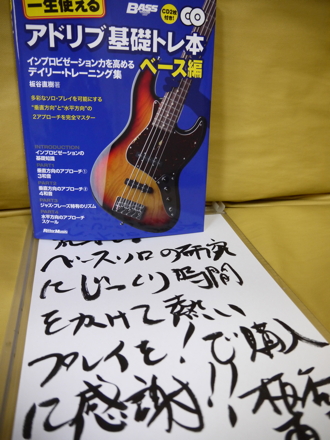 一生使える
BASS
CD2枚付き!
アドリブ基礎トレ本
インプロビゼーション力を高める
デイリー・トレーニング集
ベース編
板谷直樹 著
多彩なソロ・プレイを可能にする
“垂直方向”と“水平方向”の
2アプローチを完全マスター
INTRODUCTION
インプロビゼーションの
基礎知識
PART1
垂直方向のアプローチ①
3和音
PART2
垂直方向のアプローチ②
4和音
PART3
ジャズ・フレーズ特有のリズム
PART4
水平方向のアプローチ
スケール
Rittor Music
ベースソロの研究
にじっくり時間
をかけて熱い
プレイを!ご購入
に感謝!! 板谷
直